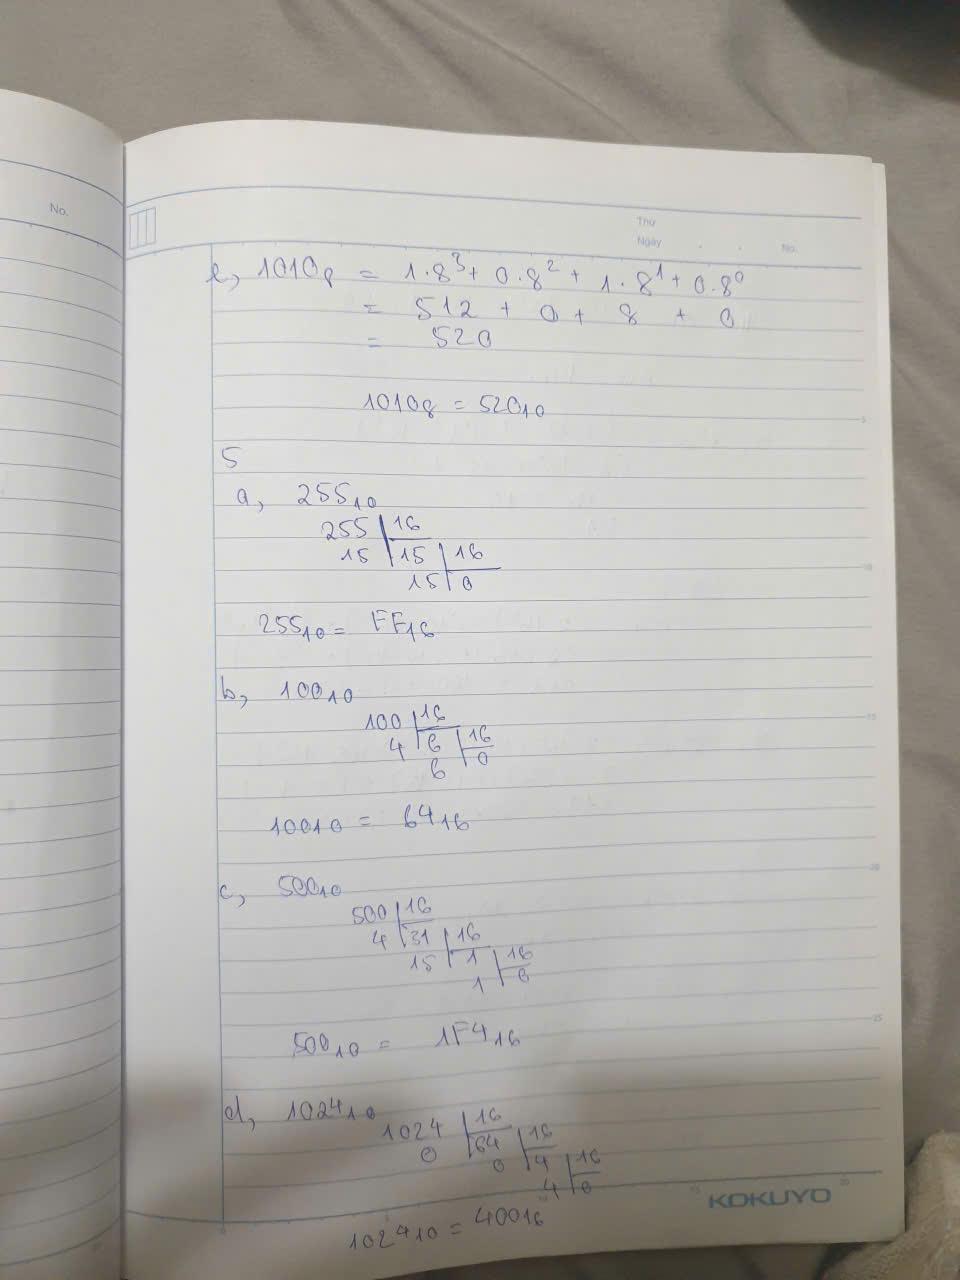 No.
Thứ
Ngày . . No.
e, 1010₈ = 1.8³ + 0.8² + 1.8¹ + 0.8⁰
= 512 + 0 + 8 + 0
= 520
1010₈ = 520₁₀
5
5
a, 255₁₀
255 | 16
15 | 15 | 16
15 | 0
10
255₁₀ = FF₁₆
b, 100₁₀
15
100 | 16
4 | 6 | 16
6 | 0
100₁₀ = 64₁₆
20
c, 500₁₀
500 | 16
4 | 31 | 16
15 | 1 | 16
1 | 0
25
500₁₀ = 1F4₁₆
d, 1024₁₀
1024 | 16
0 | 64 | 16
0 | 4 | 16
4 | 0
KOKUYO
1024₁₀ = 400₁₆